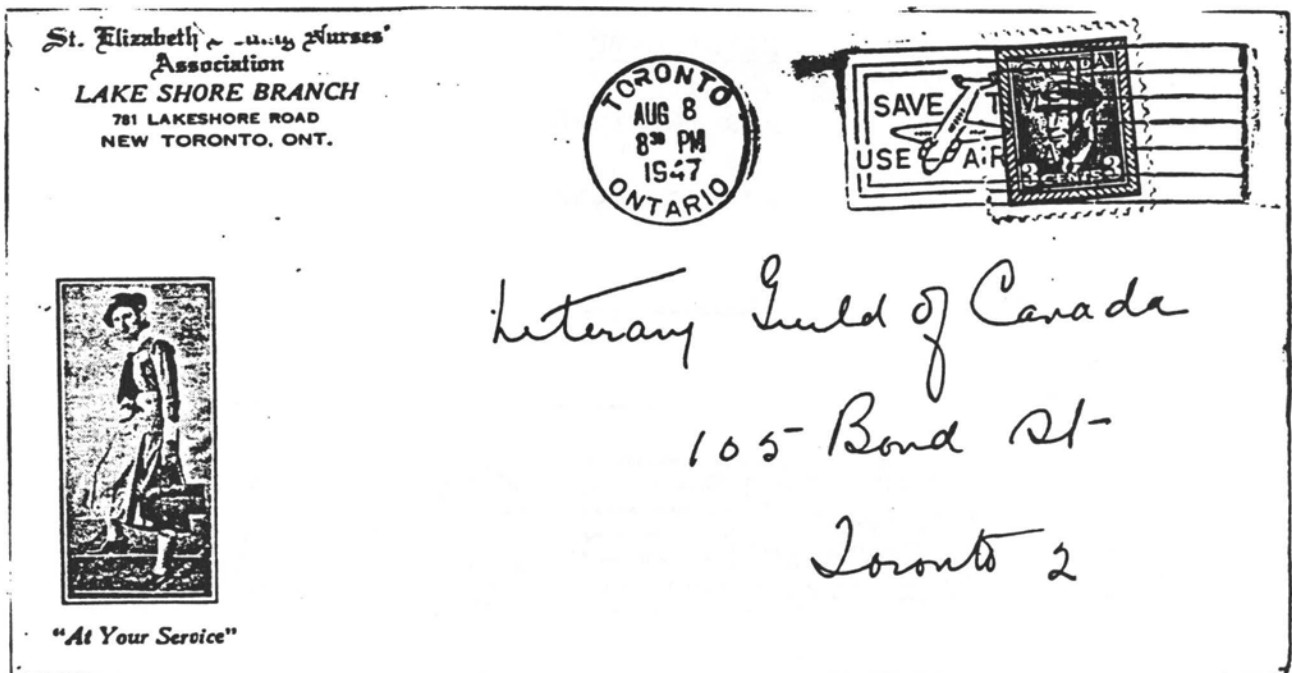 St. Elizabeth Nurses'
Association
LAKE SHORE BRANCH
781 LAKESHORE ROAD
NEW TORONTO, ONT.
TORONTO
AUG 8
8³⁰ PM
1947
ONTARIO
SAVE
USE AIR
CANADA
3 CENTS 3
Literary Guild of Canada
105 Bond St
Toronto 2
"At Your Service"